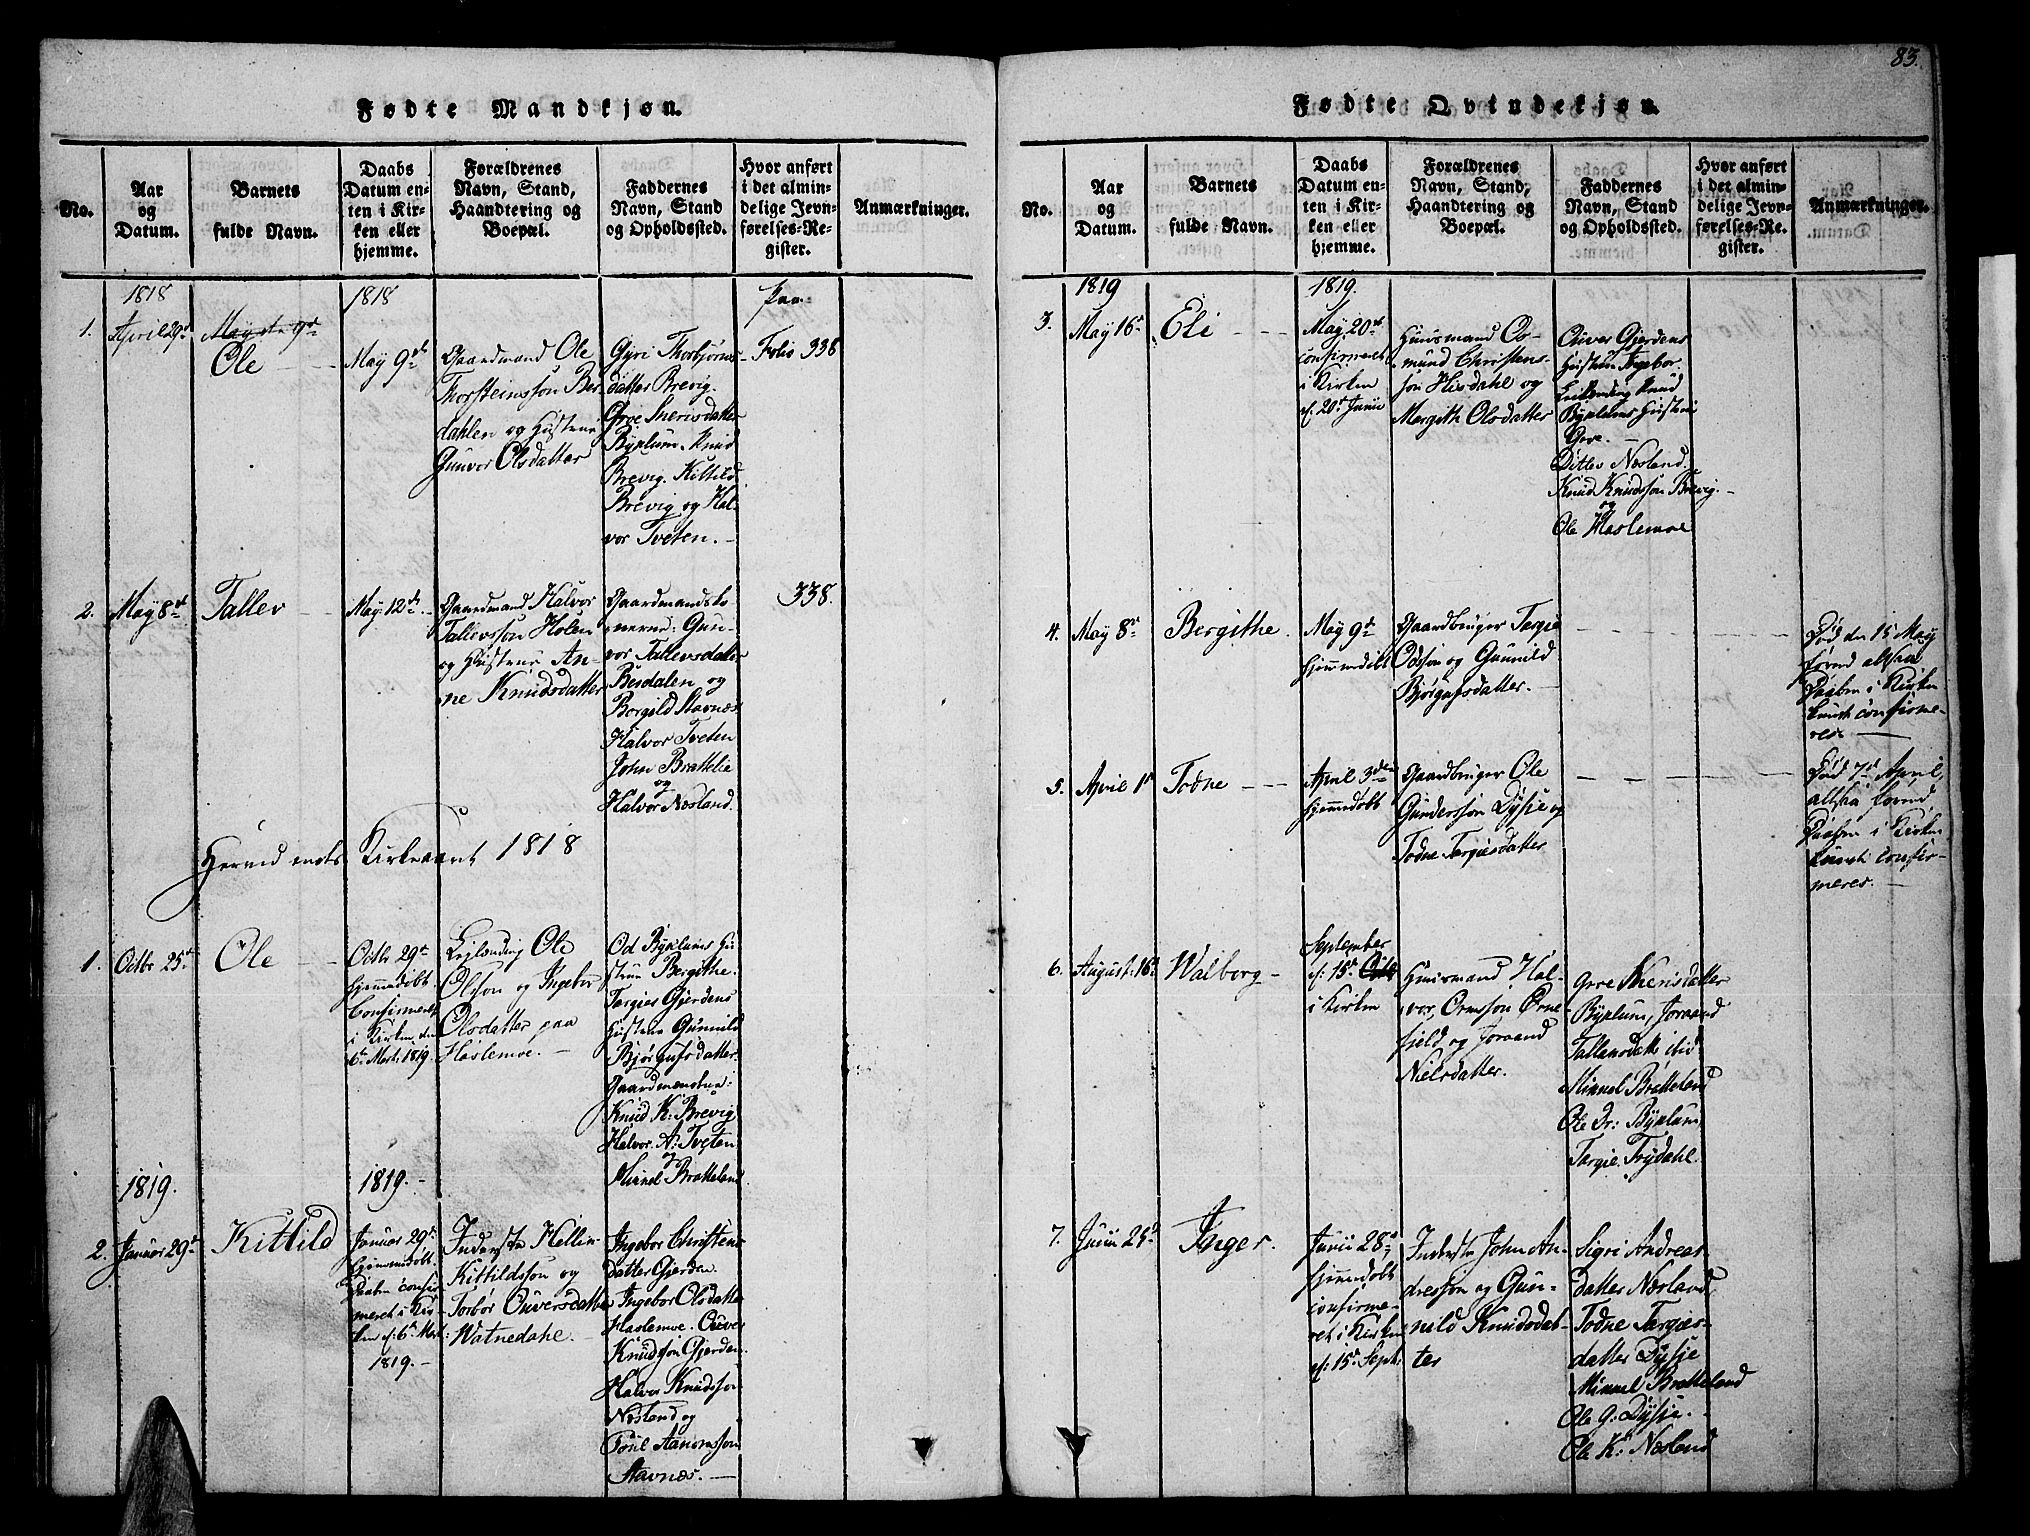 83.
Fødte Mandkjøn.
No.
Aar
og
Datum.
Barnets
fulde Navn.
Daabs
Datum en-
ten i Kir-
ken eller
hjemme.
Forældrenes
Navn, Stand,
Haandtering og
Boepæl.
Faddernes
Navn, Stand
og Opholdssted.
Hvor anført
i det almin-
delige Jevn-
førelses-Re-
gister.
Anmærkninger.
1818
1.
April 29de
Ole
1818
May 9de
Gaardmand Ole
Thorsteinssøn Bes
dahlen og Hustrue
Gunvor Olsdatter
Gyri Thorbjørns-
datter Brevig.
Gyro Sverisdatter
Byxlum. Knud
Brevig. Kittild
Brevig og Hal-
vor Tveten.
paa
Folio 338
2.
May 8de
Tallev
May 12de
Gaardmand Halvor
Tallevssøn Holen
og Hustrue An-
ne Knudsdatter
Gun-
vor Tallevsdatter
Besdalen og
Borgild Stavnes
Halvor Tveten
John Brattlie
og
Halvor Næsland.
338.
Hermed endts Kirkeaaret 1818
1.
Octbr 25de
Ole
Octbr 29de
hjemmedøbt
Confirmeret
i Kirken den
6te Mart. 1819.
Leilænding Ole
Olssøn og Ingebor
Olsdatter paa
Haslemoe.
Od Byxlums Hu-
strue Bergithe.
Targies Gjerdens
Hustrue Gunnild
Bjørgufsdatter.
Gaardmændene:
Knud K: Brevig
Halvor A: Tveten
og
Mikkel Bratteland
1819.
2.
Januar 29de
Kittild
1819.
Januar 29de
hjemmedøbt.
Daaben confir-
meret i Kir-
ken d: 6te Mart:
1819.
Inderste Hellie
Kittildssøn og
Torbør Ouversdatter
Watnedahl.
Ingebor Christens
datter Gjerden.
Ingebor Olsdatter
Haslemoe. Ouver
Knudssøn Gjerden.
Halvor Knudssøn
Næsland og
Poul Aanonssøn
Stavnes.
Fødte Qvindekjøn.
No.
Aar
og
Datum.
Barnets
fulde Navn.
Daabs
Datum en-
ten i Kir-
ken eller
hjemme.
Forældrenes
Navn, Stand,
Haandtering og
Boepæl.
Faddernes
Navn, Stand
og Opholdssted.
Hvor anført
i det almin-
delige Jevn-
førelses-Re-
gister.
Anmærkninger.
1819
3.
May 16de
Eli
1819.
May 20de
confirmeret
i Kirken
d: 20de Junii
Huusmand Os-
mund Christens-
søn Hisdahl og
Margith Olsdatter
Ouver Gjerdens
Hustrue Ingebor
Knud
Byxlums Hustrue
Gyro.
Ditlev Næsland.
Knud Knudssøn Brevig.
og
Ole Haslemoe
4.
May 8de
Bergithe.
May 9de
hjemmedøbt
Gaardbruger Targie
Odssøn og Gunnild
Bjørgufsdatter.
Død den 15 May
førend altsaa
Daaben i Kirken
kunde confirme-
res
5.
April 1de
Todne
April 3den
hjemmedøbt
Gaardbruger Ole
Gunderssøn Dysje og
Todne Targiesdatter
Død 7de April,
altsaa førend
Daaben i Kirken
kunde confir-
meres.
6.
August: 16de
Walborg
September
d: 15de
i Kirken
Huusmand Hal-
vor Ormssøn Ørne
fjeld og Joraand
Nielsdatter.
Gyro Sverisdatter
Byxlum, Joraand
Tallevsdatt: ibid
Mikkel Bratteland
Ole Dr: Byxlum
Targie Frydahl.
7.
Junii 25de
Inger.
Junii 28de
hjemmedøbt
confirme-
ret i Kirken
d: 15de Sept:
Inderste John An-
dressøn og Gun-
nild Knudsdat-
ter
Sigri Andreas-
datter Næsland,
Todne Targies-
datter Dysje
Mikkel Bratteland
Ole G: Dysje.
Ole K: Næsland